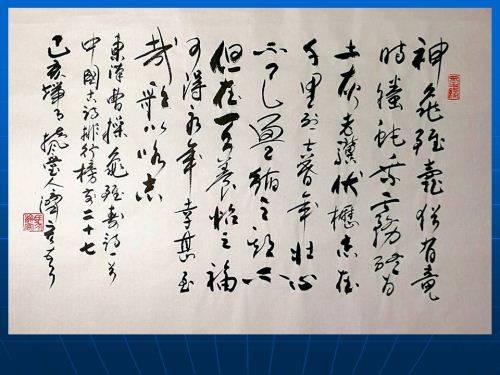 神龜雖壽猶有竟
時螣蛇乘霧終为
土灰老驥伏櫪志在
千里烈士暮年壮心
不已盈缩之期不
但在天養怡之福
可得永年幸甚至
哉歌以咏志
東漢曹操龜雖壽诗一首
中國古诗排行榜第二十七
己亥